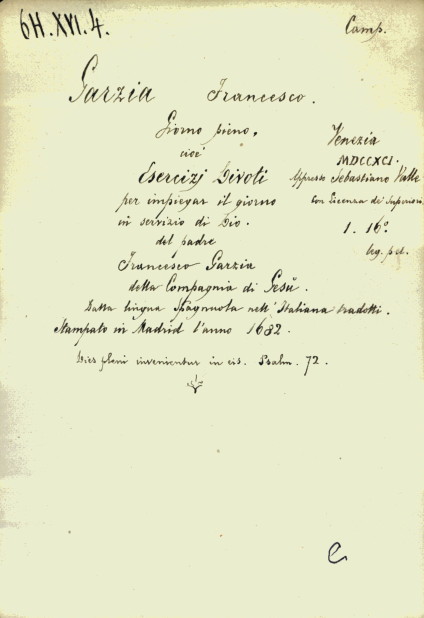 6H.XVI.4.
Camp.
Garzia Francesco.
Giorno pieno,
cioè
Esercizj Divoti
per impiegar il giorno
in servizio di Dio.
del padre
Francesco Garzia
della Compagnia di Gesù.
Dalla lingua Spagnuola nell'Italiana tradotti.
Stampato in Madrid l'anno 1682.
Dies pleni invenientur in eis. Psalm. 72.
Venezia
MDCCXCI.
Appresso Sebastiano Valle
Con Licenza de' Superiori
1. 16º.
leg. pel.
e